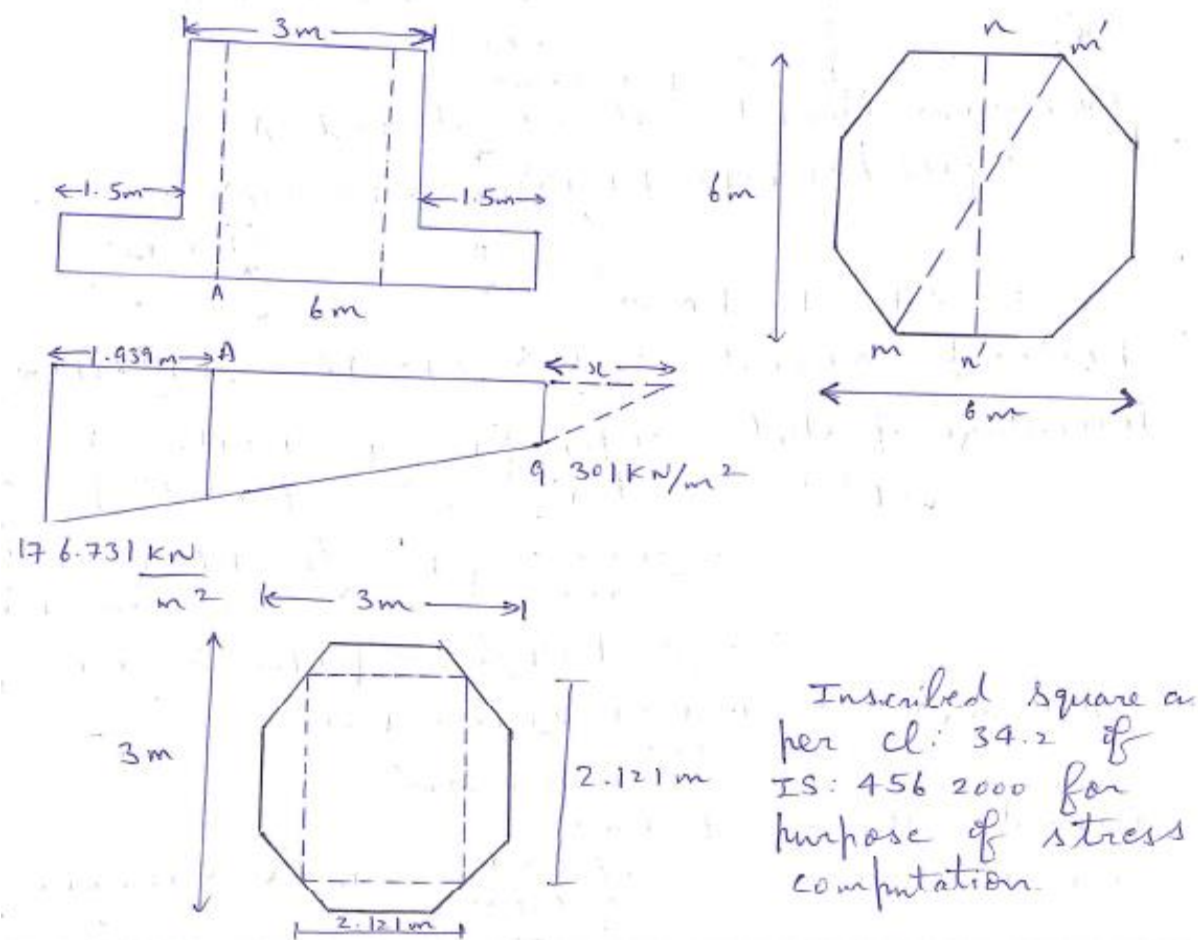 3m
1.5m
1.5m
A
6m
n
m'
6m
m
n'
6m
1.939m
A
x
9.301 KN/m²
176.731 KN/m²
3m
3m
2.121m
2.121m
Inscribed square a
per cl: 34.2 of
IS: 456 2000 for
purpose of stress
computation.